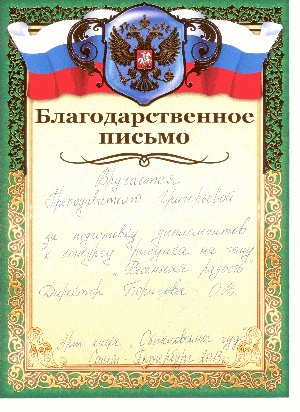 Благодарственное
письмо
Вручается
Преподавателю Григорьевой
за подготовку дипломантов
к конкурсу рисунка на тему
"Весенняя радость"
Директор Борисова О.В.
Арт
Санкт-Петербург